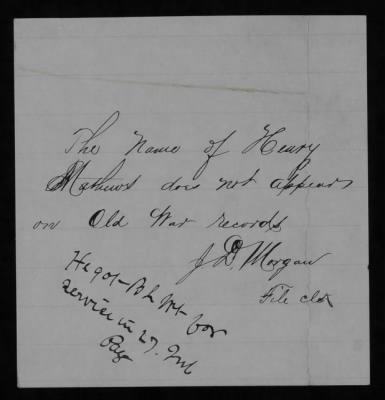 The Name of Henry
Mathews does not appear
on Old War records
J. D. Morgan
File clk
He got B L Wt for
service in 27. Inf
Reg